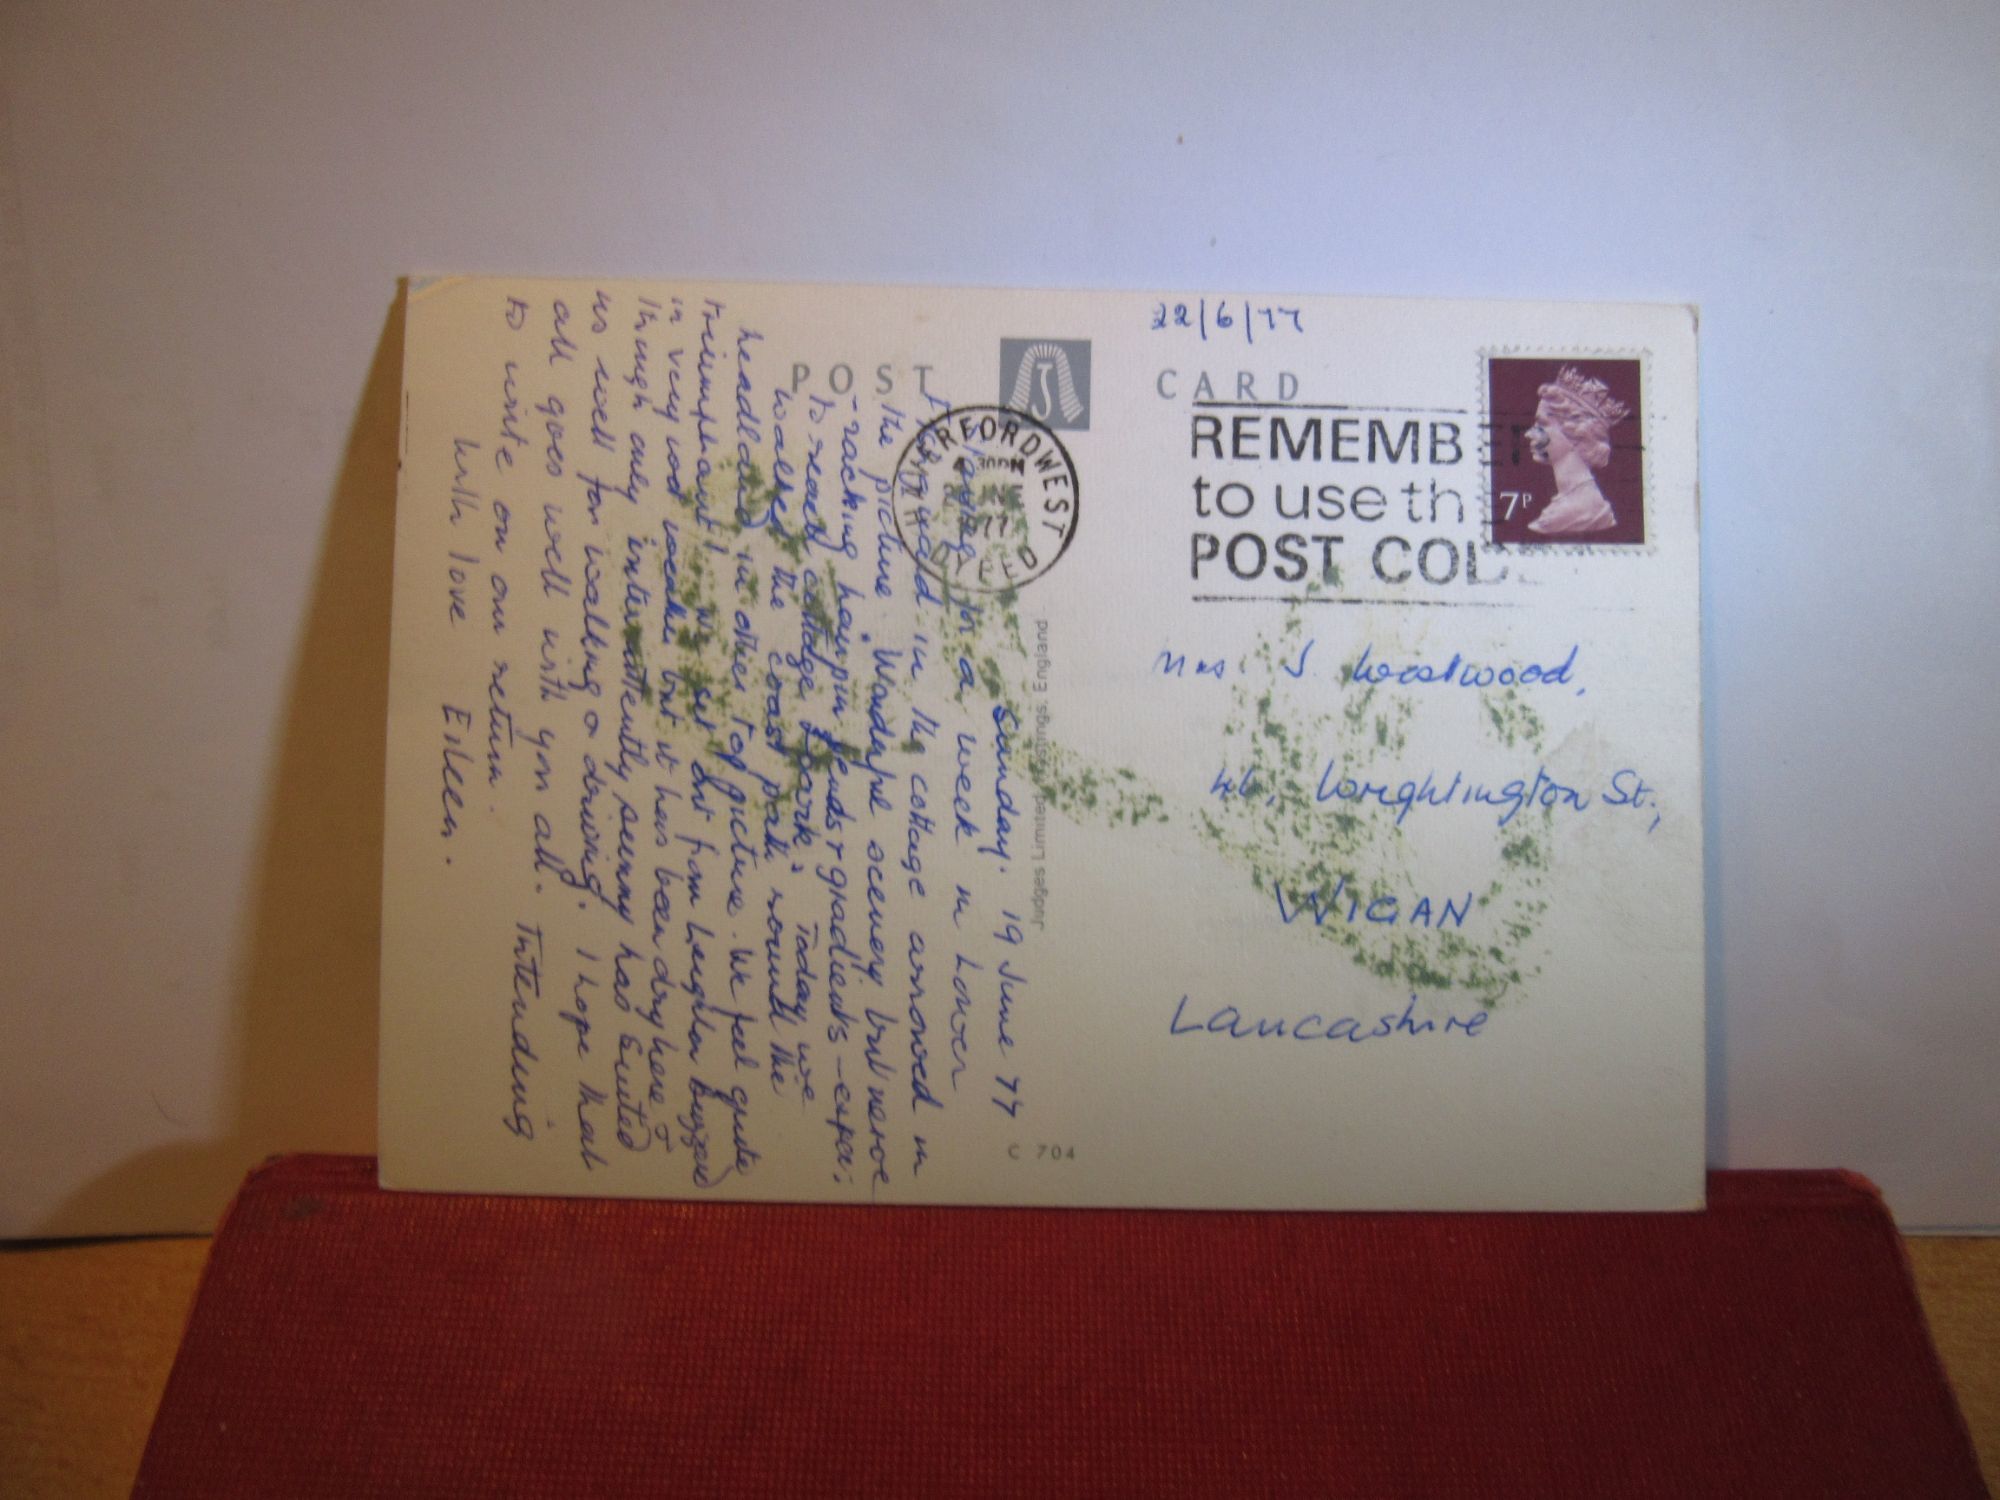 22/6/77
POST CARD
REMEMB
to use th
POST COD
7P
HAVERFORDWEST
30PM
77
Mrs. J. Westwood,
46, Wrightington St.,
WIGAN
Lancashire
Judges Limited, Hastings, England
C 704
Sunday. 19 June 77
for a week in Lower
Fishguard in the cottage arrowed in
the picture. Wonderful scenery but nerve
-racking hairpin bends & gradients - espec:
to reach cottage & park. Today we
walked the coast path round the
headland in other top picture. We feel quite
triumphant! We set out from Leighton Buzzard
in very wet weather but it has been dry here &
though only intermittently sunny has suited
us well for walking or driving. I hope that
all goes well with you all. Intending
to write on our return.
With love Eileen.